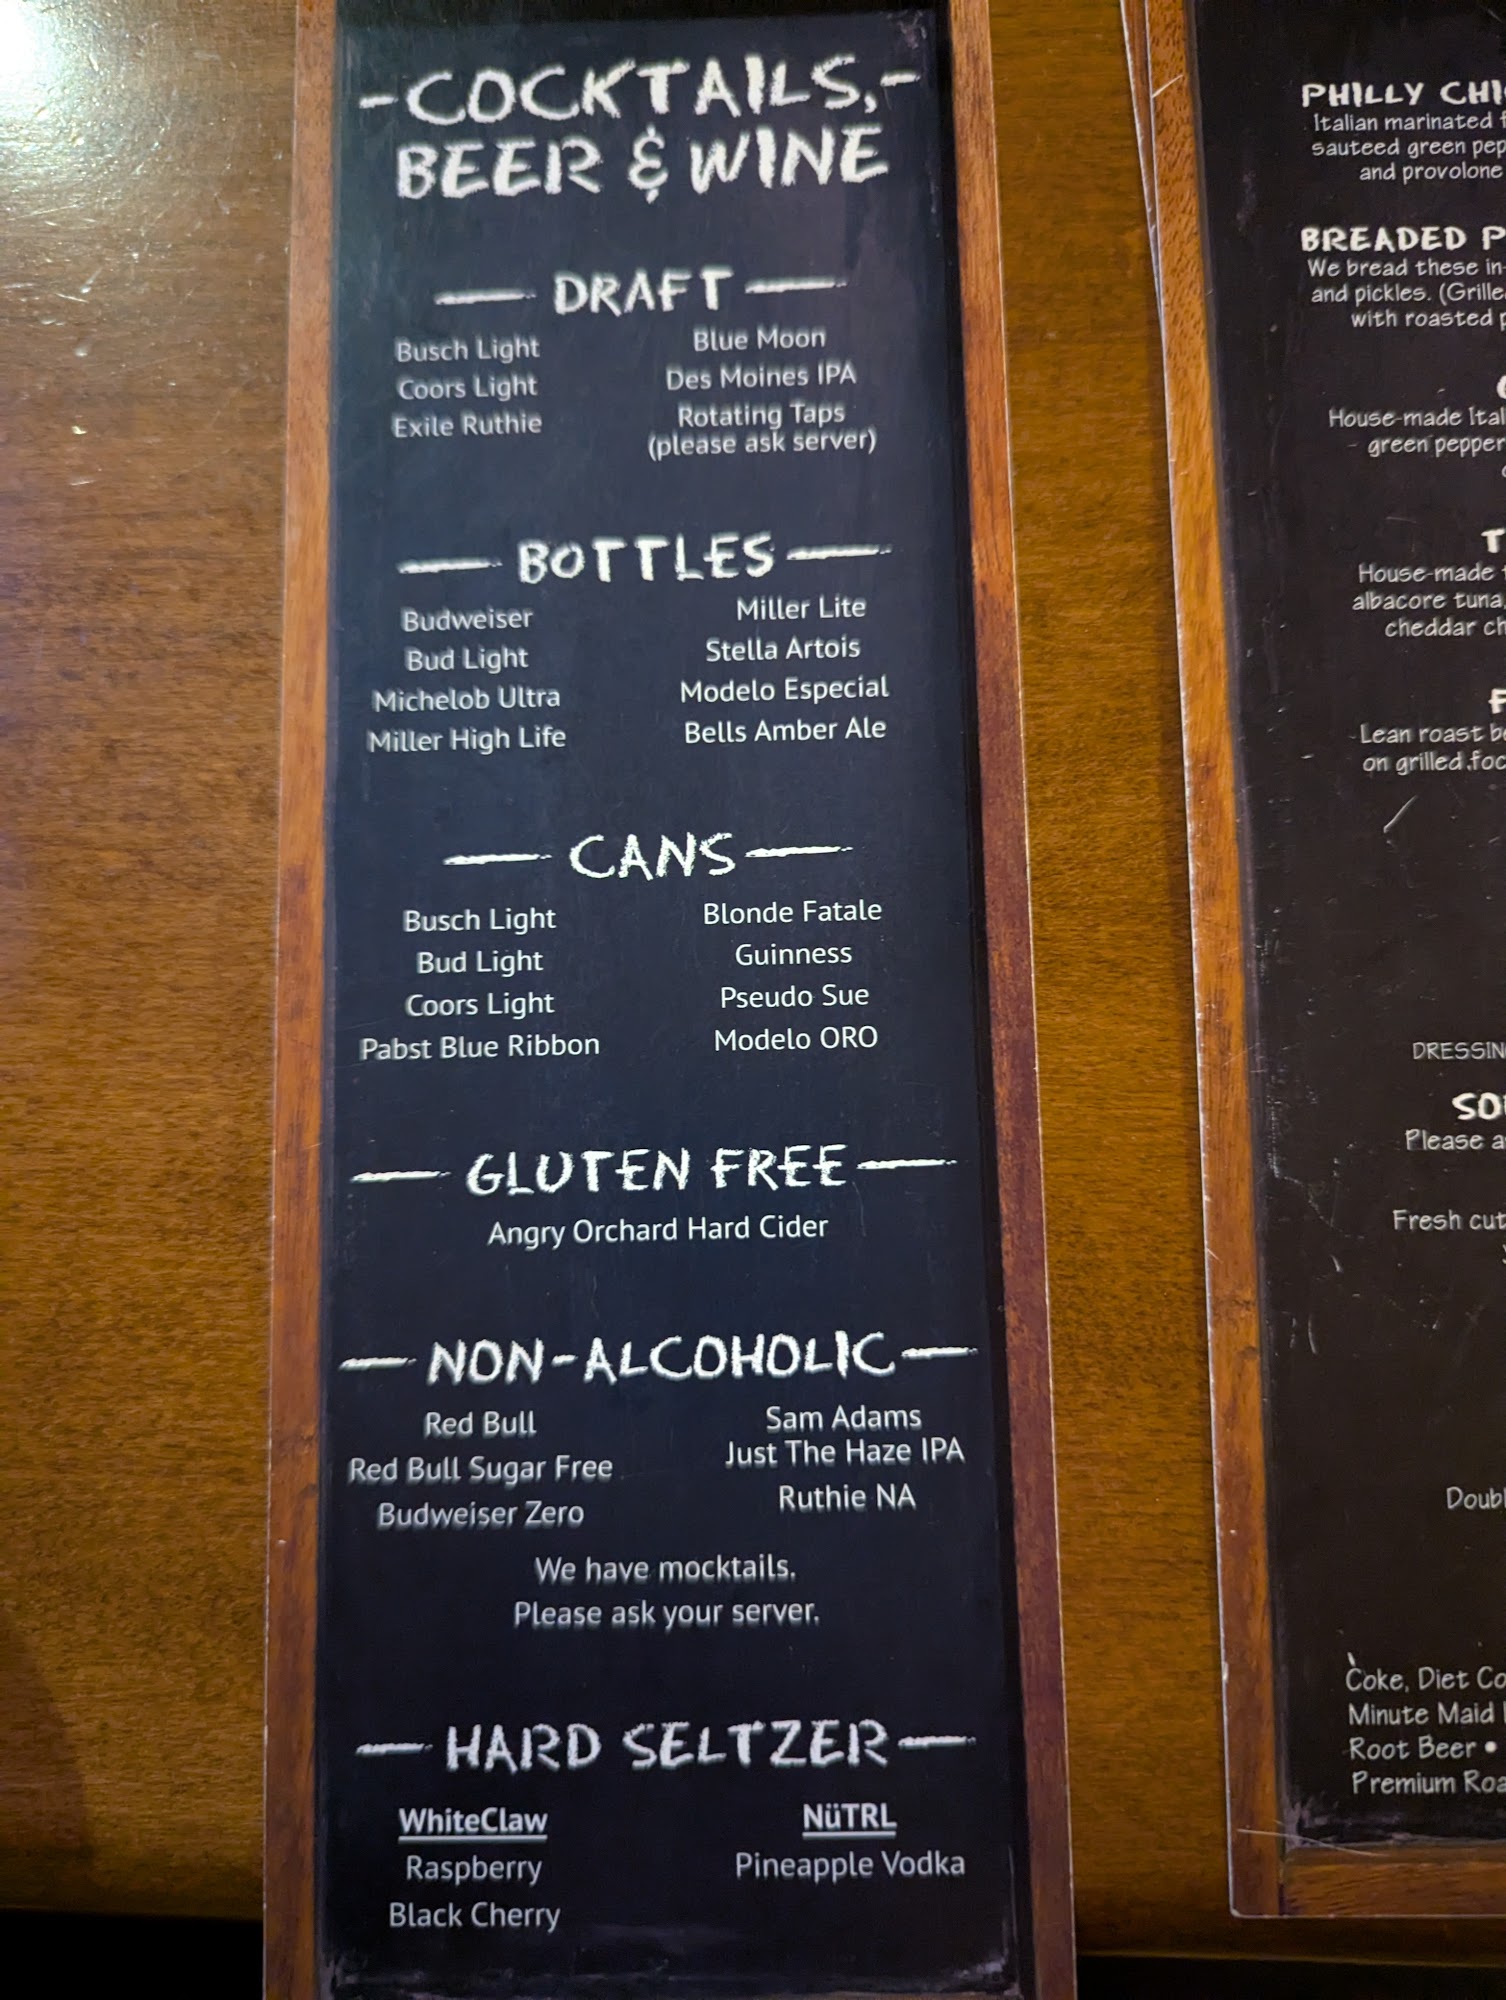 -COCKTAILS,-
BEER & WINE
DRAFT
Busch Light
Coors Light
Exile Ruthie
Blue Moon
Des Moines IPA
Rotating Taps
(please ask server)
BOTTLES
Budweiser
Bud Light
Michelob Ultra
Miller High Life
Miller Lite
Stella Artois
Modelo Especial
Bells Amber Ale
CANS
Busch Light
Bud Light
Coors Light
Pabst Blue Ribbon
Blonde Fatale
Guinness
Pseudo Sue
Modelo ORO
GLUTEN FREE
Angry Orchard Hard Cider
NON-ALCOHOLIC
Red Bull
Red Bull Sugar Free
Budweiser Zero
Sam Adams
Just The Haze IPA
Ruthie NA
We have mocktails.
Please ask your server.
HARD SELTZER
WhiteClaw
Raspberry
Black Cherry
NüTRL
Pineapple Vodka
PHILLY
Italian marinated
sauteed green
and provolone
BREADED
We bread these
and pickles.
with roasted
House-made
green pepper
House-made
albacore tuna
cheddar
Lean roast
on grilled
Please
Fresh cut
Coke, Diet
Minute Maid
Root Beer •
Premium